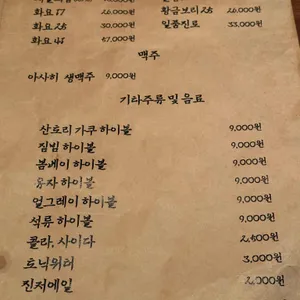 화요 17 26,000원 황금보리 25 26,000원
화요 25 30,000원 일품진로 33,000원
화요 41 47,000원
맥주
아사히 생맥주 9,000원
기타주류 및 음료
산토리 가쿠 하이볼 9,000원
짐빔 하이볼 9,000원
봄베이 하이볼 9,000원
유자 하이볼 9,000원
얼그레이 하이볼 9,000원
석류 하이볼 9,000원
콜라, 사이다 2,500원
토닉워터 3,000원
진저에일 2,000원